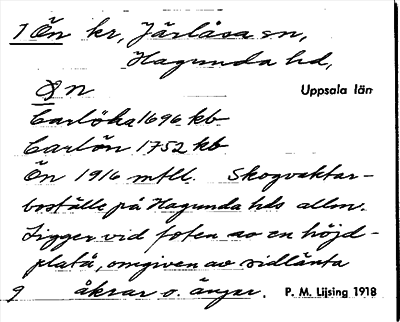 1 Ön kr, Järlåsa sn,
Hagunda hd,
Ön Uppsala län
Carlöha 1696 kb
Carlön 1752 kb
Ön 1916 mtll. Skogvaktar-
boställe på Hagunda hds allm.
Ligger vid foten av en höjd-
platå, omgiven av sidlänta
9 åkrar o. ängar. P. M. Lijsing 1918